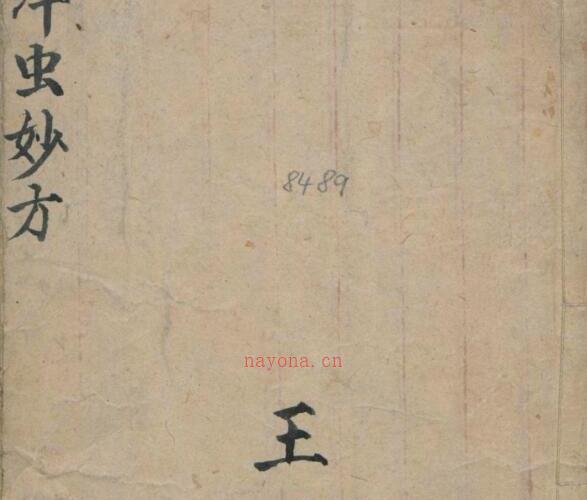 虫妙方
8489
nayona.cn
王